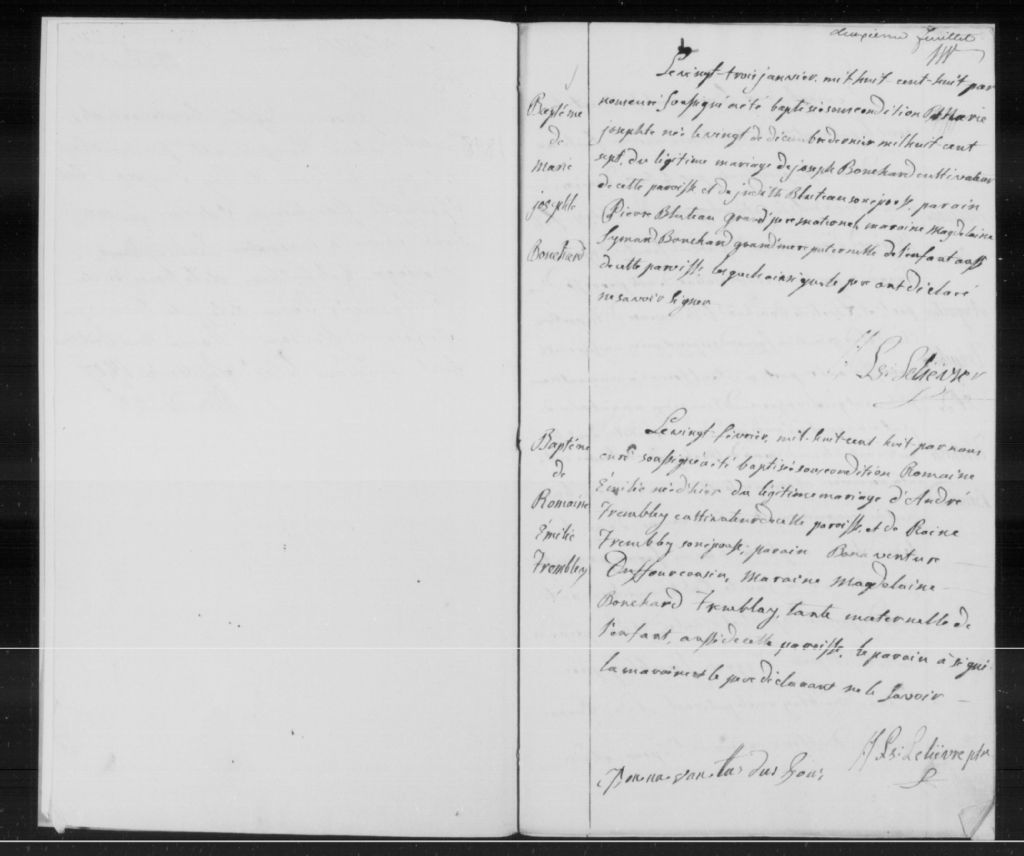 deuxieme feuillet
Baptéme
de
Marie
josephte
Bouchard
Le vingt-trois janvier, mil huit cent-huit par
nous curé soussigné a été baptisé sous condition Marie
josephte née le vingt de décembre dernier mil huit cent
sept, du légitime mariage de joseph Bouchard cultivateur
de cette paroisse et de judith Bluteau son épouse, parain
Pierre Bluteau grand'pere maternel, maraine Magdelaine
Symard Bouchard grand'mere paternelle de l'enfant aussi
de cette paroisse. lesquels ainsi que le pere ont déclaré
ne savoir signer
Ls: Leliévre
Baptéme
de
Romaine
Émilie
Trembley
Le vingt-février, mil-huit-cent huit-par nous
curé soussigné a été baptisé sous condition Romaine
Émilie née d'hier du légitime mariage d'André
Trembley cultivateur de cette paroisse, et de Raine
Trembley son épouse; parain Bonaventure
Duffour cousin, maraine Magdelaine
Bouchard Tremblay, tante maternelle de
l'enfant, aussi de cette paroisse. le parain a signé
la maraine et le pere déclarant ne le savoir
Ls: Leliévre ptre
Bonnavanture dus four